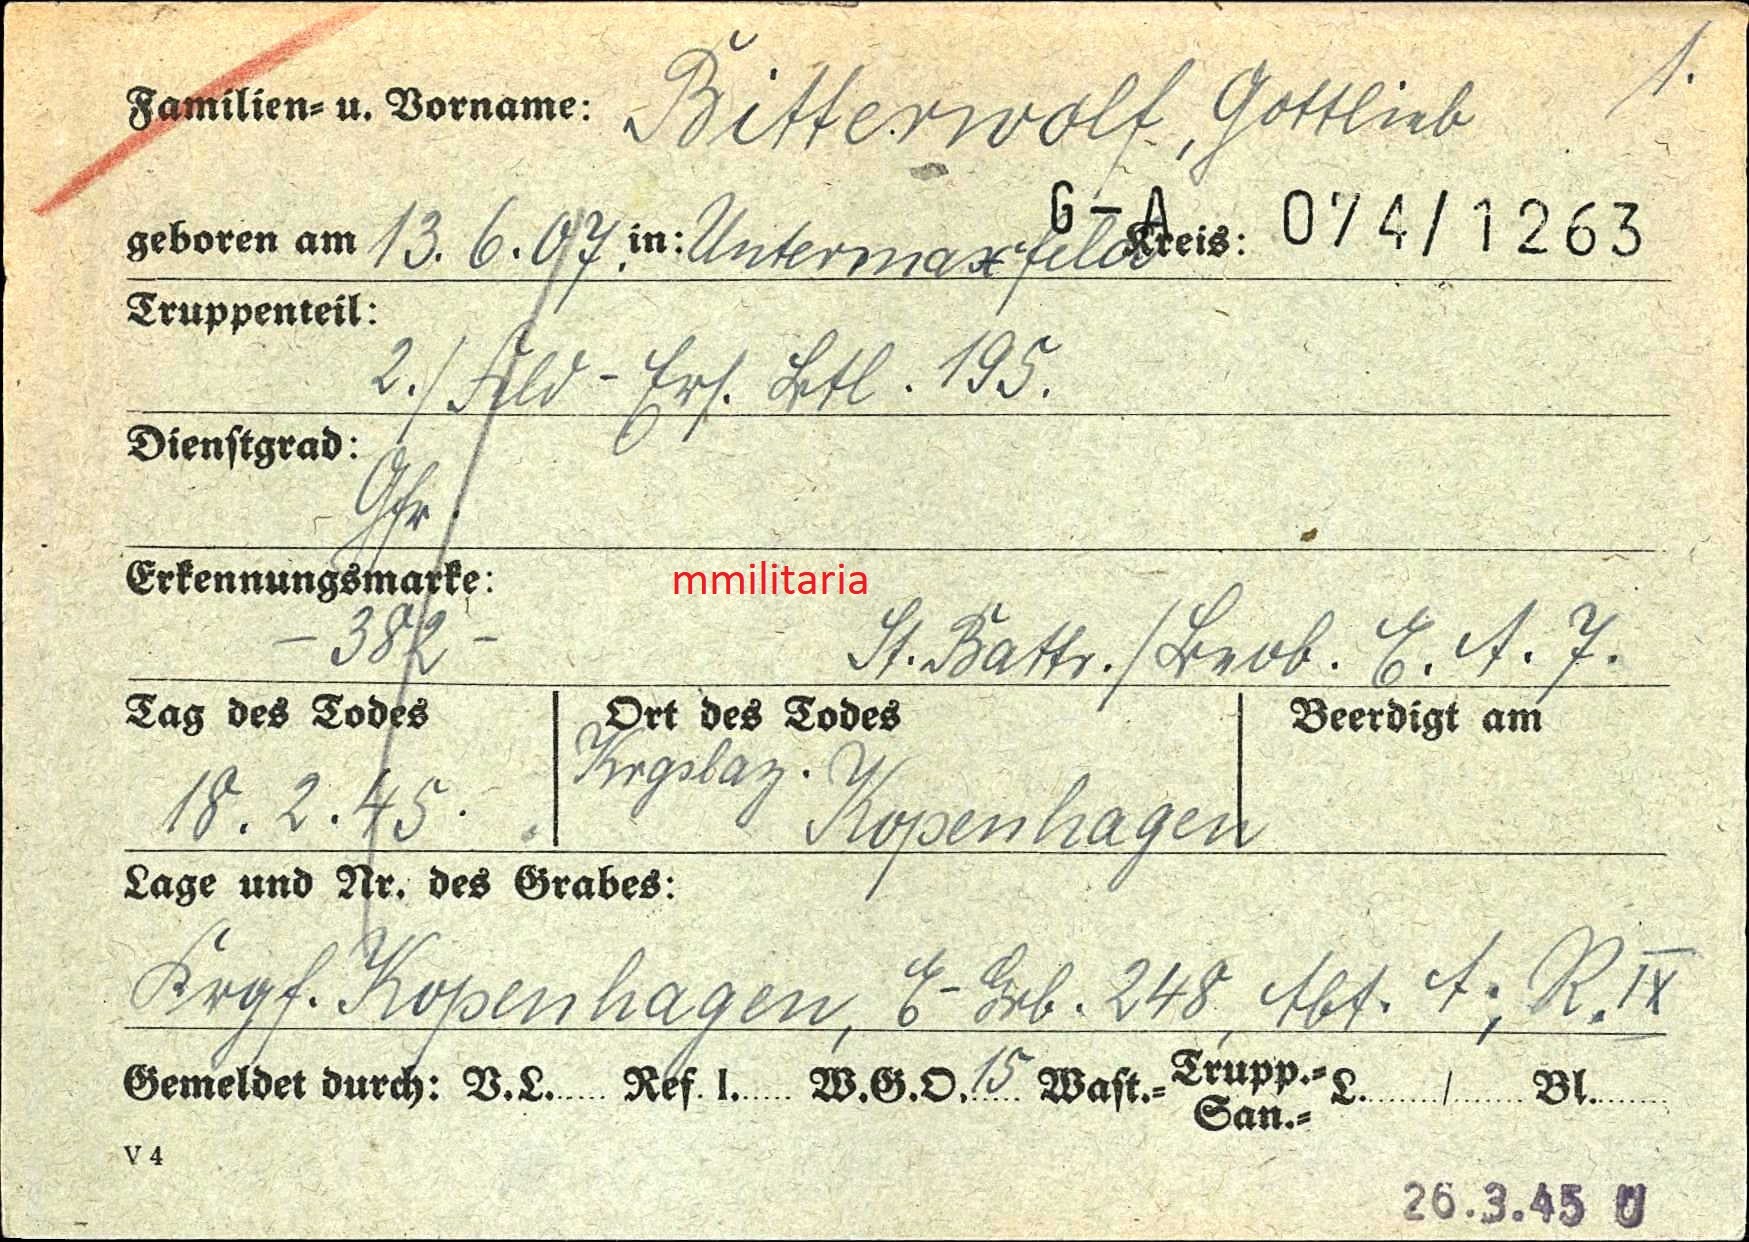 1.
Familien- u. Vorname: Bitterwolf, Gottlieb
G-A 074/1263
geboren am 13.6.07. in: Untermaxfeld Kreis:
Truppenteil:
2./Feld-Ers. Btl. 195.
Dienstgrad:
Gfr.
Erkennungsmarke:
mmilitaria
-382- St. Battr./Beob. E. A. 7.
Tag des Todes Ort des Todes Beerdigt am
18.2.45. Krgslaz. Kopenhagen
Lage und Nr. des Grabes:
Krgf. Kopenhagen, E-Grb. 248, Abt. A; R. IX
Gemeldet durch: V.L...... Ref. I...... W.G.O. 15 Wast.= Trupp.= San.= L......../........ Bl.........
V 4
26.3.45 U